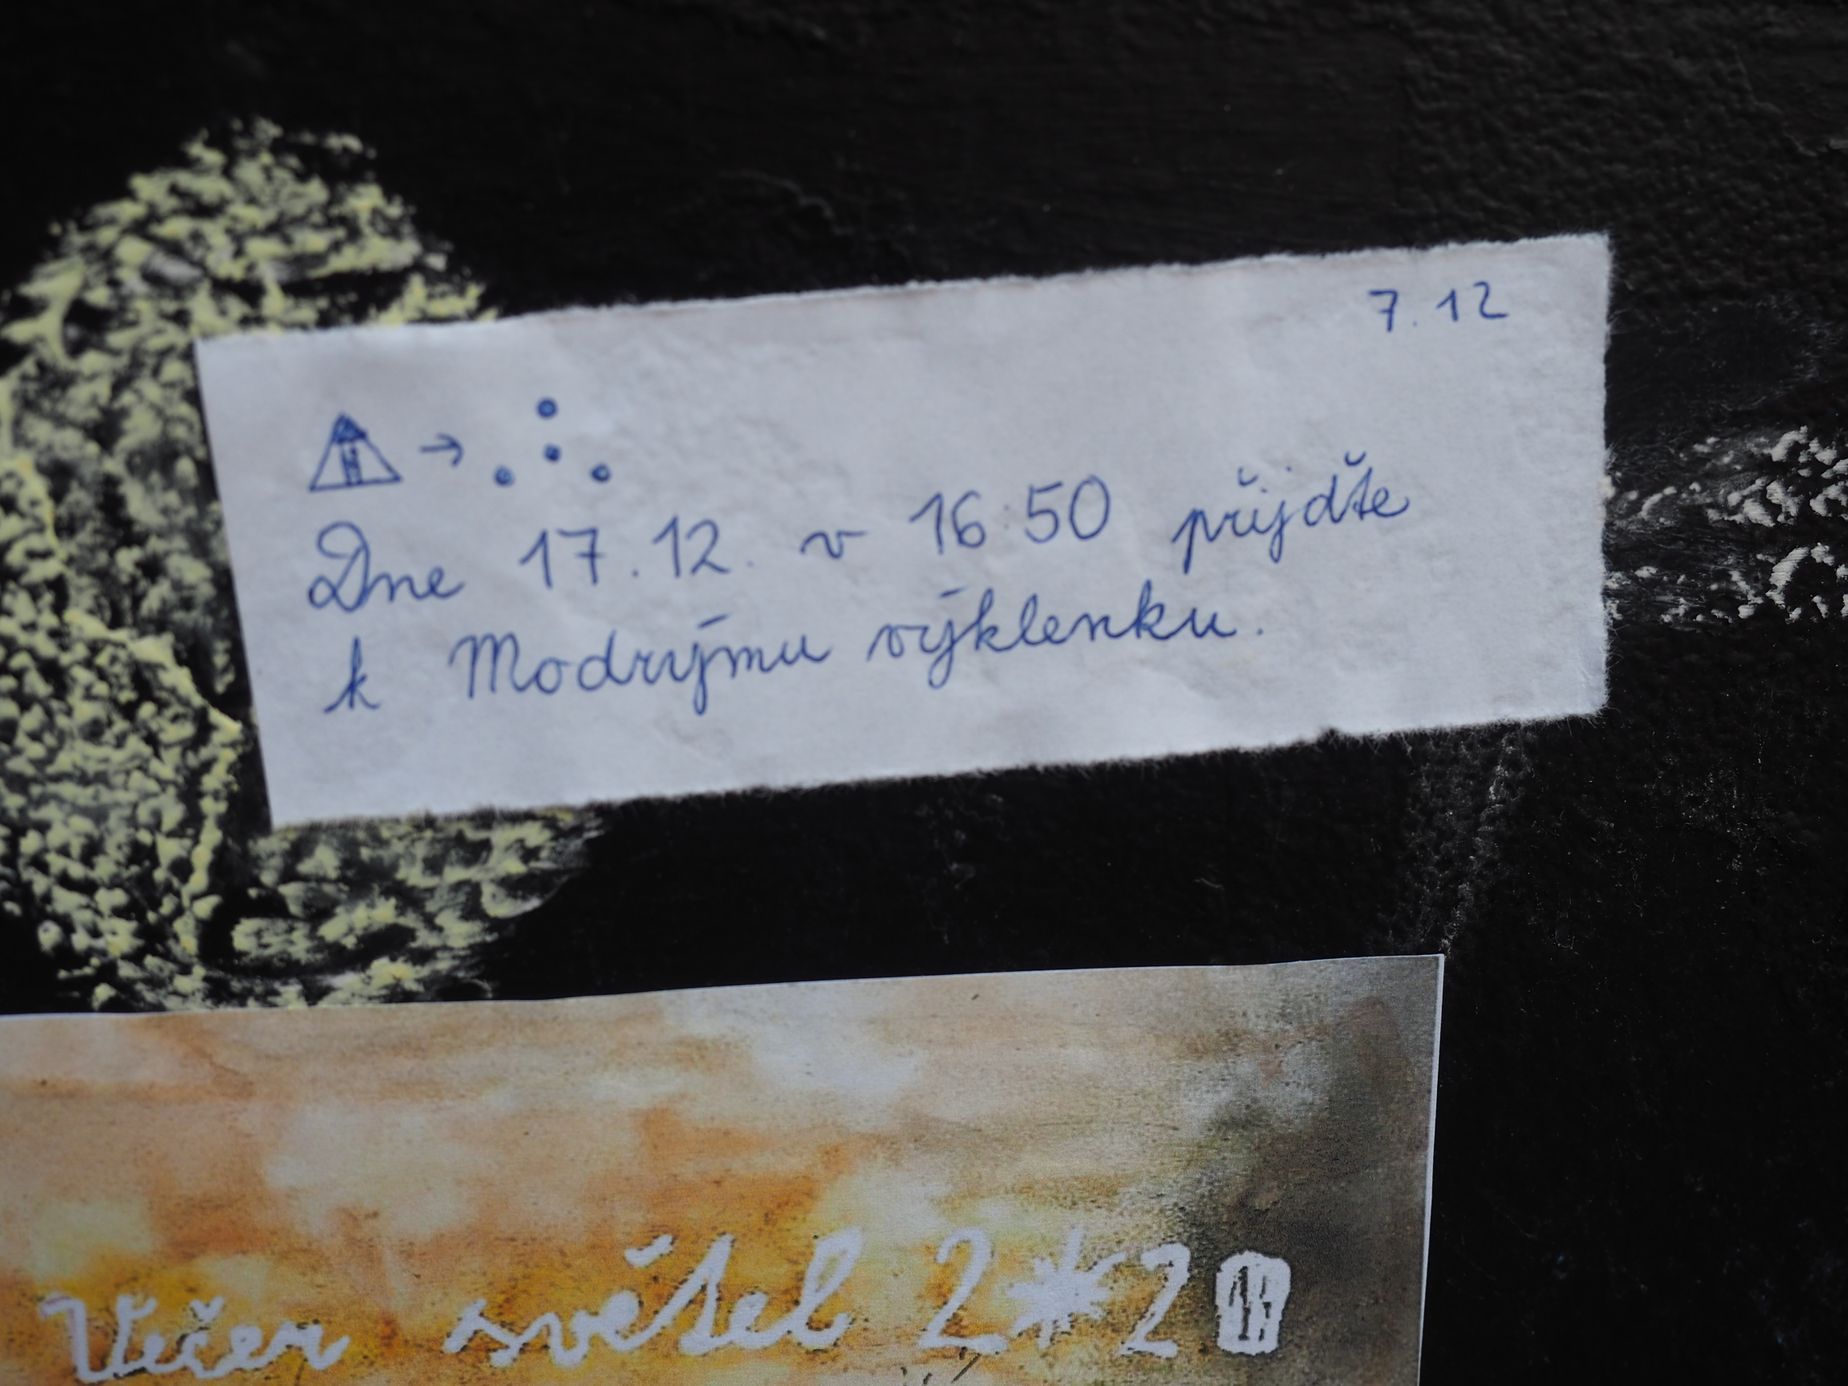 7.12
Dne 17.12. v 16:50 přijdťe
k Modrýmu výklenku.
Večer světel 2*2